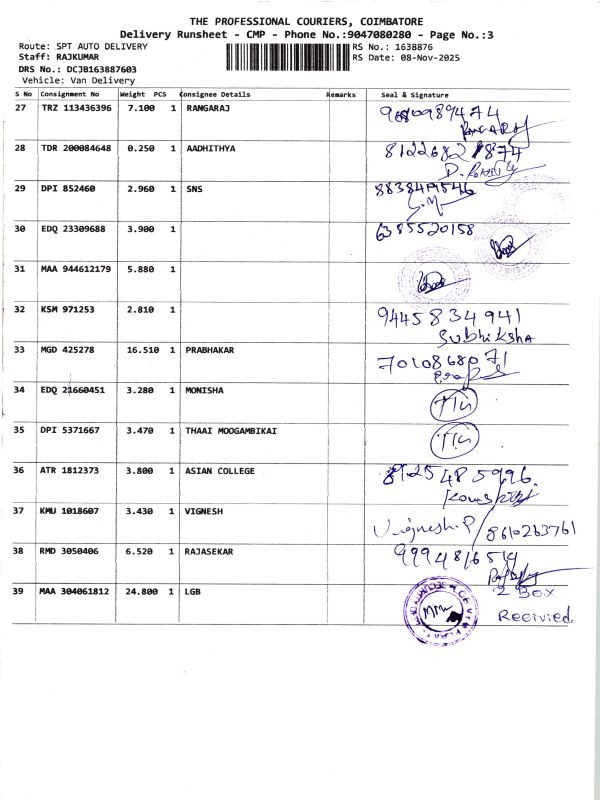 THE PROFESSIONAL COURIERS, COIMBATORE
Delivery Runsheet - CMP - Phone No.:9047080280 - Page No.:3
Route: SPT AUTO DELIVERY RS No.: 1638876
Staff: RAJKUMAR RS Date: 08-Nov-2025
DRS No.: DCJB163887603
Vehicle: Van Delivery
S No Consignment No Weight PCS Consignee Details Remarks Seal & Signature
27 TRZ 113436396 7.100 1 RANGARAJ
RANGARAJ
28 TDR 200084648 0.250 1 AADHITHYA
29 DPI 852460 2.960 1 SNS
30 EDQ 23309688 3.900 1 6385520158
31 MAA 944612179 5.880 1
32 KSM 971253 2.810 1 9445834941
Subhiksha
33 MGD 425278 16.510 1 PRABHAKAR 7010868071
34 EDQ 21660451 3.280 1 MONISHA
35 DPI 5371667 3.470 1 THAAI MOOGAMBIKAI
36 ATR 1812373 3.800 1 ASIAN COLLEGE
37 KMU 1018607 3.430 1 VIGNESH
Vignesh.P / 8610263761
38 RMD 3050406 6.520 1 RAJASEKAR
39 MAA 304061812 24.800 1 LGB 2 Box
Reervied